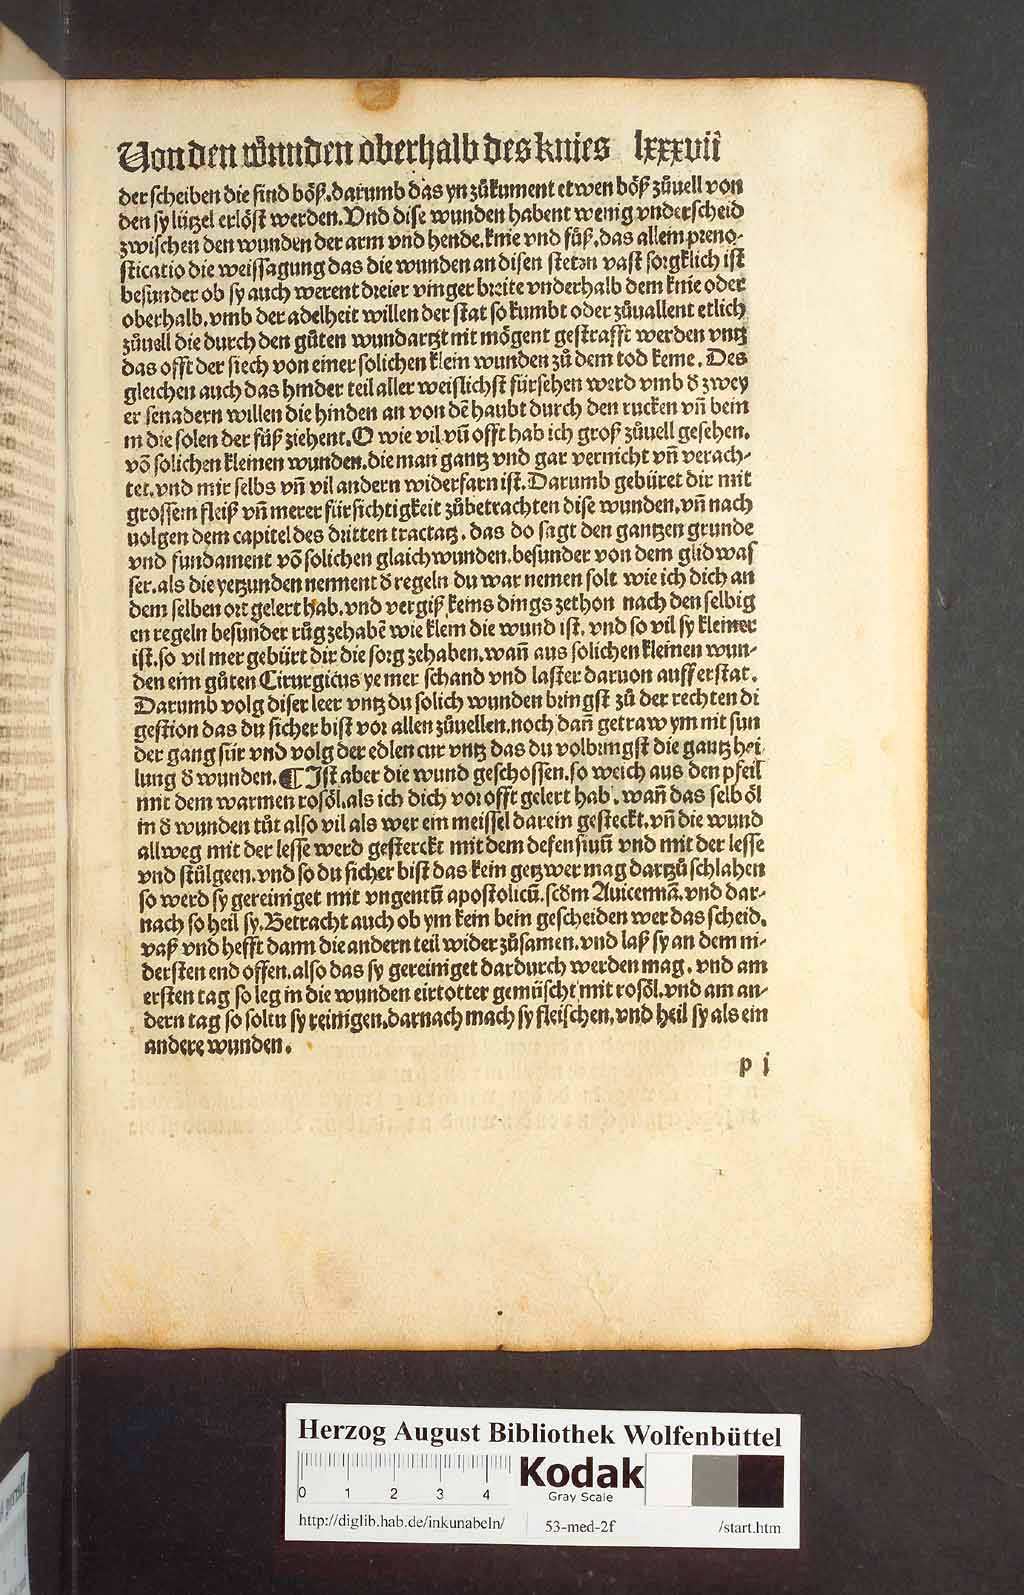 Von den wůnden oberhalb des knies lxxxvii
der scheiben die sind böß. darumb das yn zůkument etwen böß zůuell von
den sy lützel erlöst werden. Vnd dise wunden habent wenig vnderscheid
zwischen den wunden der arm vnd hende. knie vnd fůß. das allein preno-
sticatio die weissagung das die wunden an disen steten vast sorgklich ist
besunder ob sy auch werent dreier vinger breite vnderhalb dem knie oder
oberhalb. vmb der adelheit willen der stat so kumbt oder zůuallent etlich
zůuell die durch den gůten wundartzt nit mögent gestrafft werden vntz
das offt der siech von einer solichen klein wunden zů dem tod keme. Des
gleichen auch das hinder teil aller weislichst fürsehen werd vmb d̕ zwey
er senadern willen die hinden an von dē haubt durch den rucken vn̄ bein
in die solen der fůß ziehent. O wie vil vn̄ offt hab ich groß zůuell gesehen.
vō solichen kleinen wunden. die man gantz vnd gar vernicht vn̄ verach-
tet. vnd mir selbs vn̄ vil andern widerfarn ist. Darumb gebüret dir mit
grossem fleiß vn̄ merer fürsichtigkeit zůbetrachten dise wunden. vn̄ nach
uolgen dem capitel des dritten tractatz. das do sagt den gantzen grunde
vnd fundament vō solichen glaich wunden. besunder von dem glidwas
ser. als die yetzunden nement d̕ regeln du war nemen solt wie ich dich an
dem selben ort gelert hab. vnd vergiß keins dings zethon nach den selbig
en regeln besunder růg zehabē wie klein die wund ist. vnd so vil sy kleiner
ist. so vil mer gebürt dir die sorg zehaben. wan̄ aus solichen kleinen wun-
den eim gůten Cirurgicus ye mer schand vnd laster daruon aufferstat.
Darumb volg diser leer vntz du solich wunden bringst zů der rechten di
gestion das du sicher bist vor allen zůuellen. noch dan̄ getraw ym nit sun
der gang für vnd volg der edlen cur vntz das du volbringst die gantz hei
lung d̕ wunden. ¶ Ist aber die wund geschossen. so weich aus den pfeil
mit dem warmen rosöl. als ich dich vor offt gelert hab. wan̄ das selb öl
in d̕ wunden tůt also vil als wer ein meissel darein gesteckt. vn̄ die wund
allweg mit der lesse werd gesterckt mit dem defensiuū vnd mit der lesse
vnd stůlgeen. vnd so du sicher bist das kein getzwer mag dartzů schlahen
so werd sy gereiniget mit vngentū apostolicū. scd̕m Auicennā. vnd dar-
nach so heil sy. Betracht auch ob ym kein bein gescheiden wer das scheid.
vaß vnd hefft dann die andern teil wider zůsamen. vnd laß sy an dem ni-
dersten end offen. also das sy gereiniget dardurch werden mag. vnd am
ersten tag so leg in die wunden eirtotter gemüscht mit rosöl. vnd am an-
dern tag so soltu sy reinigen. darnach mach sy fleischen. vnd heil sy als ein
andere wunden.
p j
Herzog August Bibliothek Wolfenbüttel
0 1 2 3 4
Kodak
Gray Scale
http://diglib.hab.de/inkunabeln/ 53-med-2f /start.htm